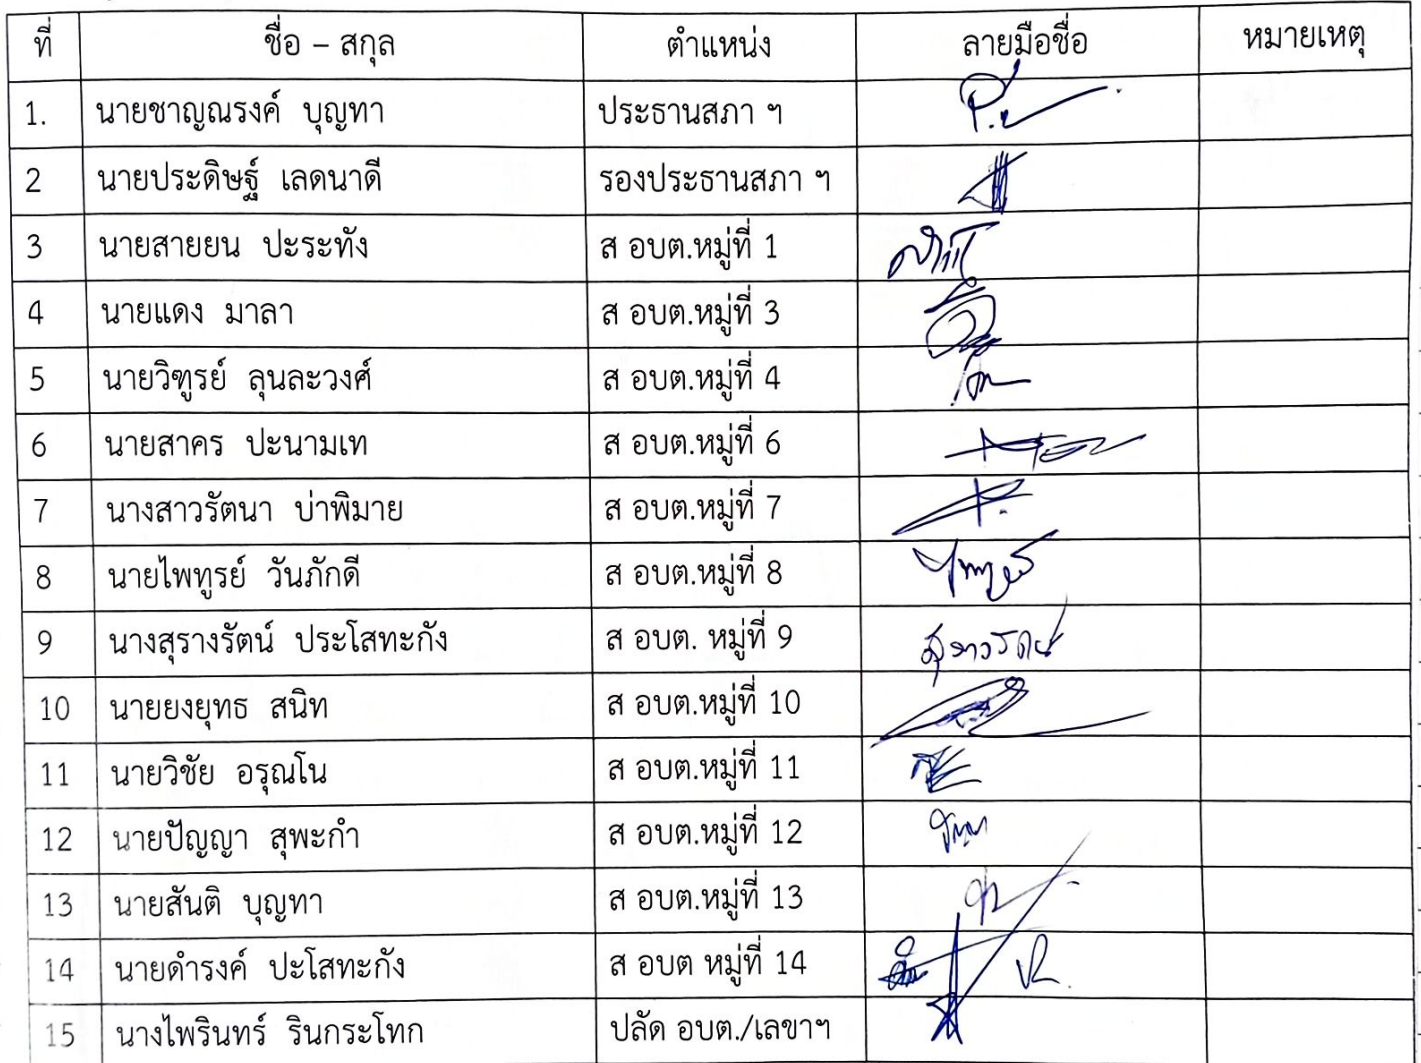 ที่ ชื่อ – สกุล ตำแหน่ง ลายมือชื่อ หมายเหตุ
1. นายชาญณรงค์ บุญทา ประธานสภา ฯ
2 นายประดิษฐ์ เลดนาดี รองประธานสภา ฯ
3 นายสายยน ปะระทัง ส อบต.หมู่ที่ 1
4 นายแดง มาลา ส อบต.หมู่ที่ 3
5 นายวิฑูรย์ ลุนละวงศ์ ส อบต.หมู่ที่ 4
6 นายสาคร ปะนามเท ส อบต.หมู่ที่ 6
7 นางสาวรัตนา บ่าพิมาย ส อบต.หมู่ที่ 7
8 นายไพฑูรย์ วันภักดี ส อบต.หมู่ที่ 8
9 นางสุรางรัตน์ ประโสทะกัง ส อบต. หมู่ที่ 9 สุรางรัตน์
10 นายยงยุทธ สนิท ส อบต.หมู่ที่ 10
11 นายวิชัย อรุณโน ส อบต.หมู่ที่ 11
12 นายปัญญา สุพะกำ ส อบต.หมู่ที่ 12
13 นายสันติ บุญทา ส อบต.หมู่ที่ 13
14 นายดำรงค์ ปะโสทะกัง ส อบต หมู่ที่ 14
15 นางไพรินทร์ รินกระโทก ปลัด อบต./เลขาฯ